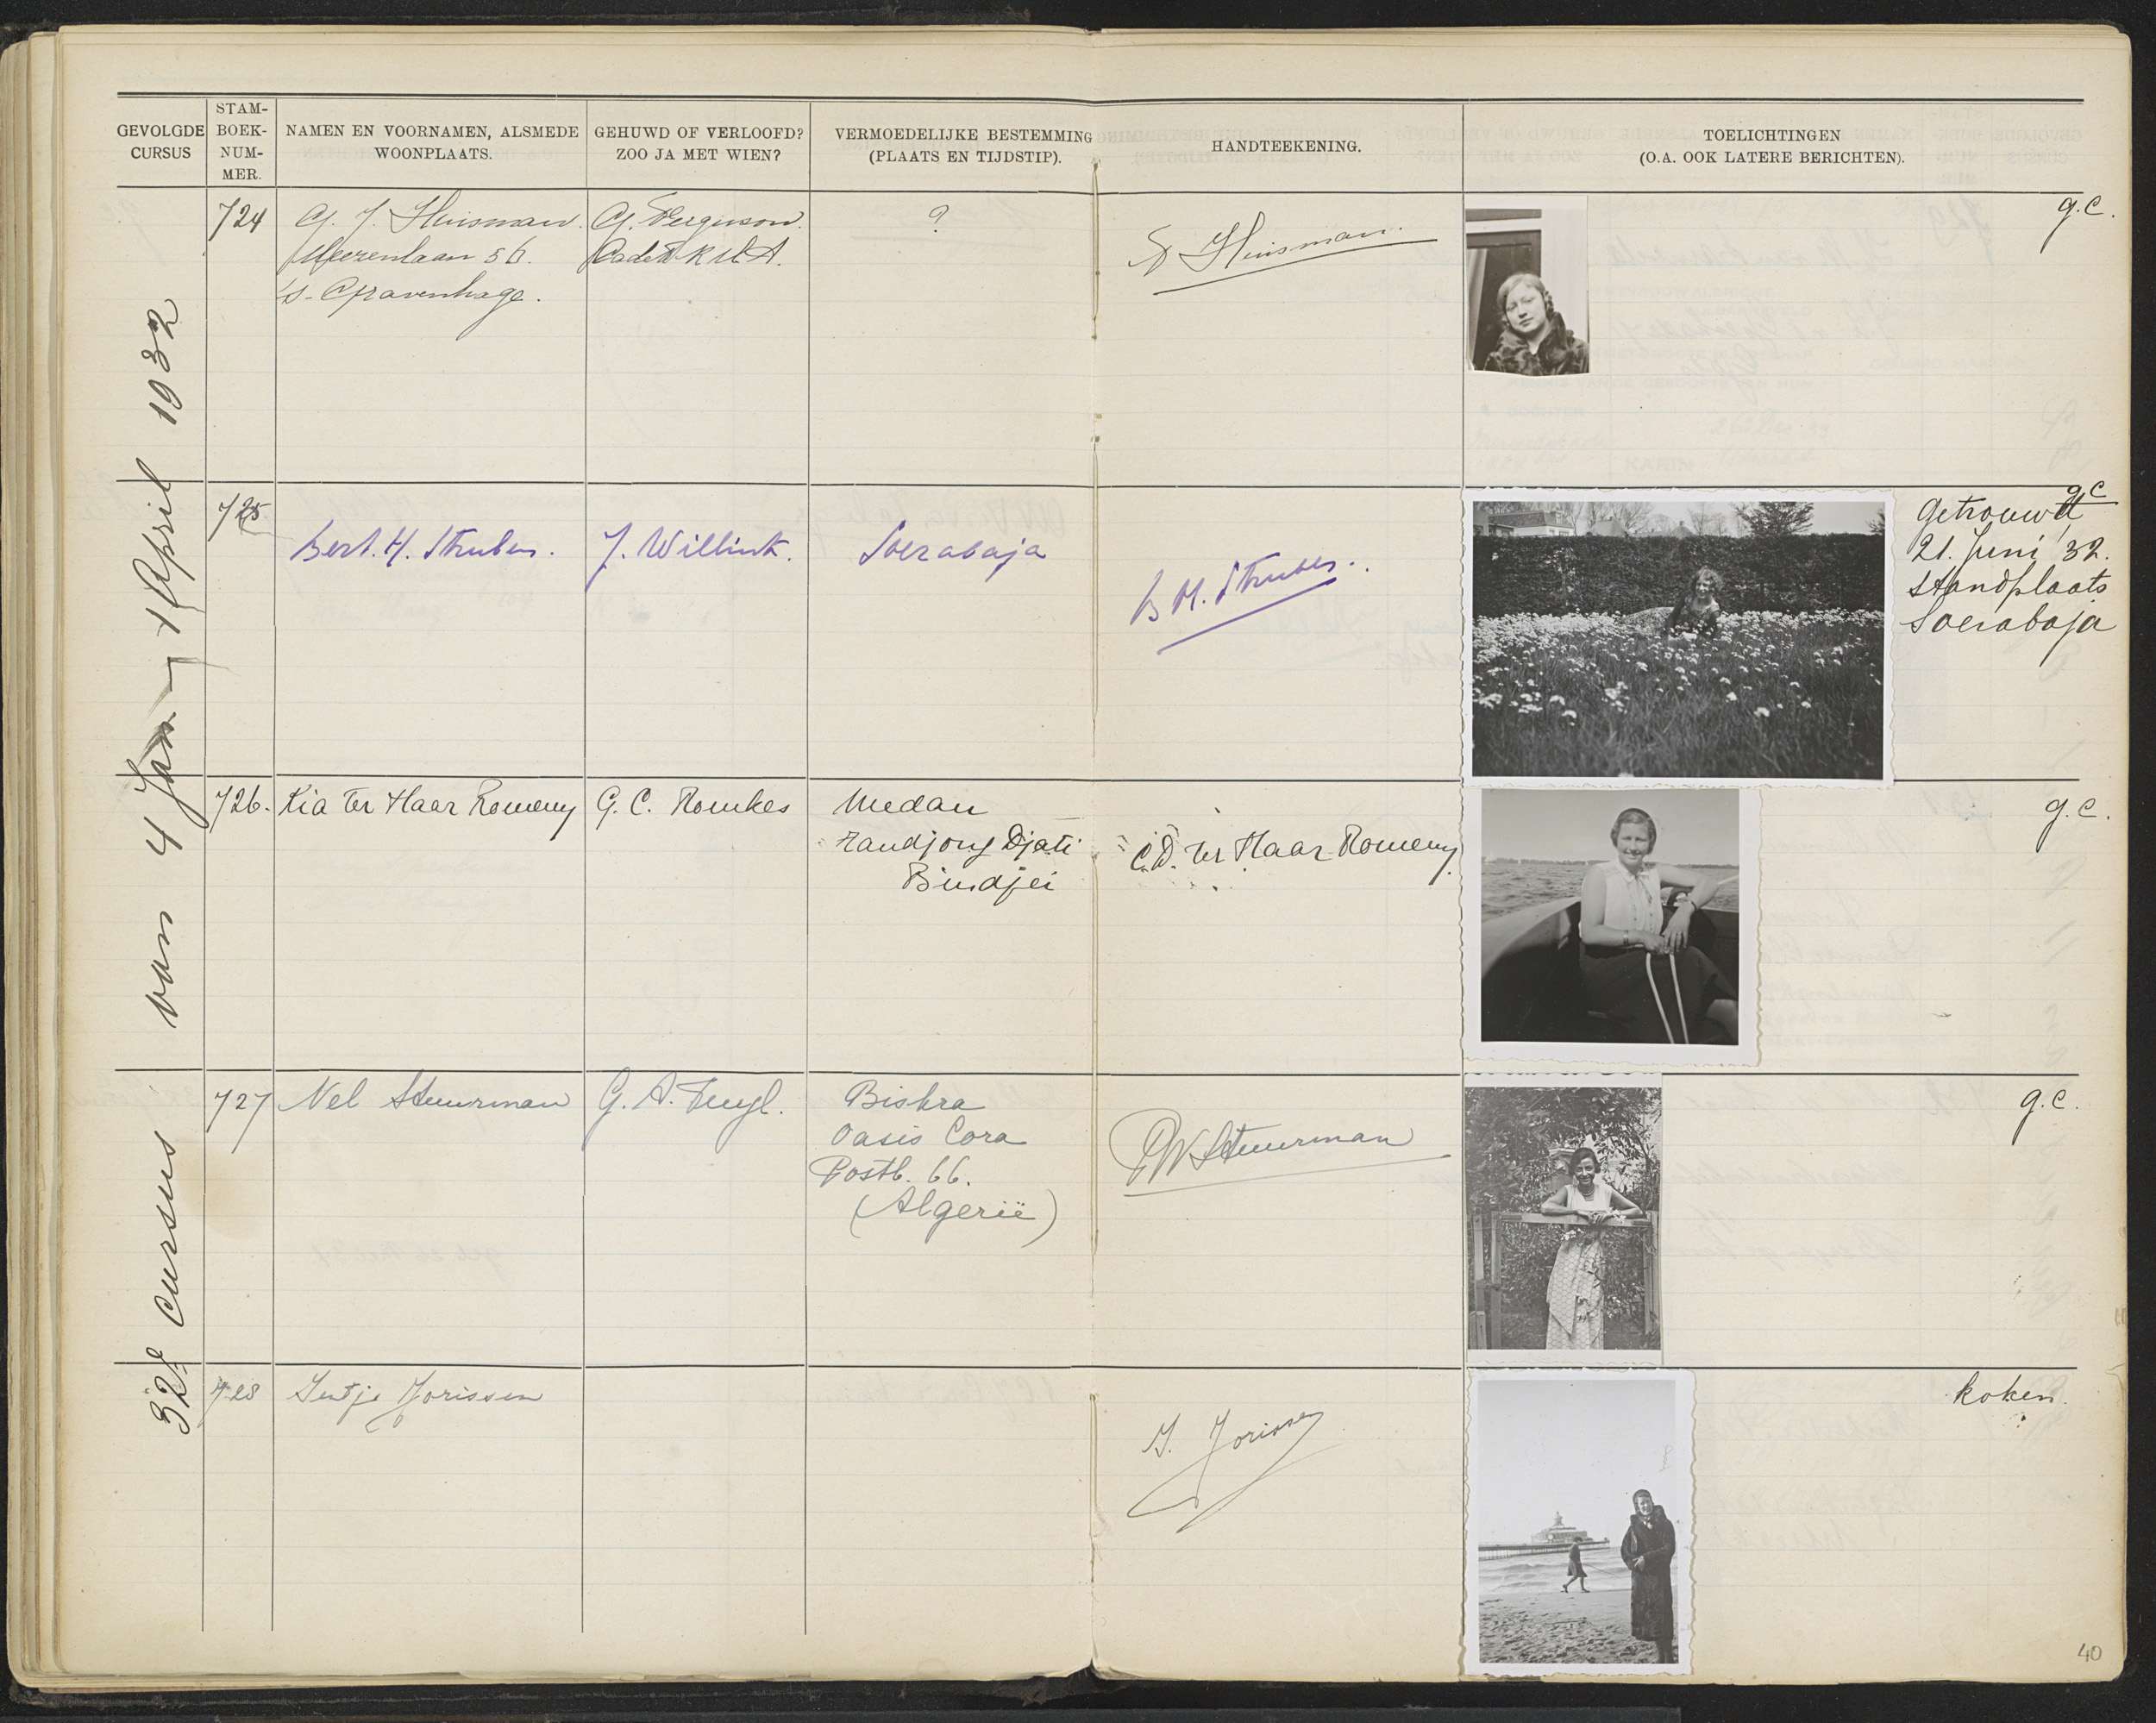 GEVOLGDE
CURSUS
STAM-
BOEK-
NUM-
MER.
NAMEN EN VOORNAMEN, ALSMEDE
WOONPLAATS.
GEHUWD OF VERLOOFD?
ZOO JA MET WIEN?
VERMOEDELIJKE BESTEMMING
(PLAATS EN TIJDSTIP).
HANDTEEKENING.
TOELICHTINGEN
(O.A. OOK LATERE BERICHTEN).
32e cursus van 4 Jan - 1 April 1932
724
G. J. Huisman.
56.
's-Gravenhage.
G. Ferguson.
Cadet K.M.A.
?
Huisman.
g.c.
725
Bert. H. Strubes.
J. Willink.
Soerabaja
B H. Strubes.
g c
getrouwd
21. Juni '32.
standplaats
Soerabaja
726.
Kia ter Haar Romeny
G. C. Romkes
Medan
Tandjong Djati
Bindjei
C.D. ter Haar Romeny
g.c.
727
Nel Stuurman
G. A.
Biskra
Oasis Cora
Postb. 66.
(Algerië)
PW Stuurman
g.c.
728
Jorissen
J. Jorissen
koken.
40